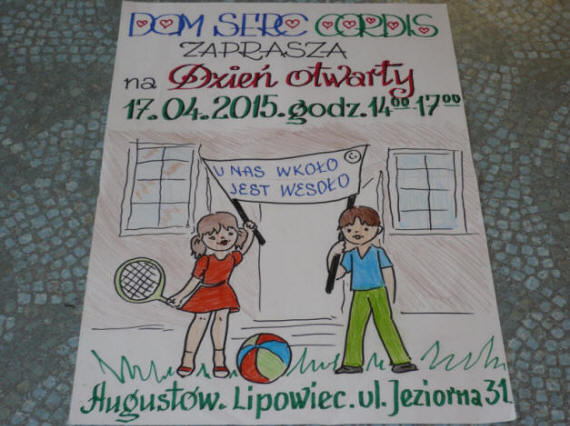 DOM SERC CORDIS
ZAPRASZA
na Dzień otwarty
17.04.2015.godz.14⁰⁰-17⁰⁰
U NAS WKOŁO
JEST WESOŁO
Augustów. Lipowiec. ul. Jeziorna 31.